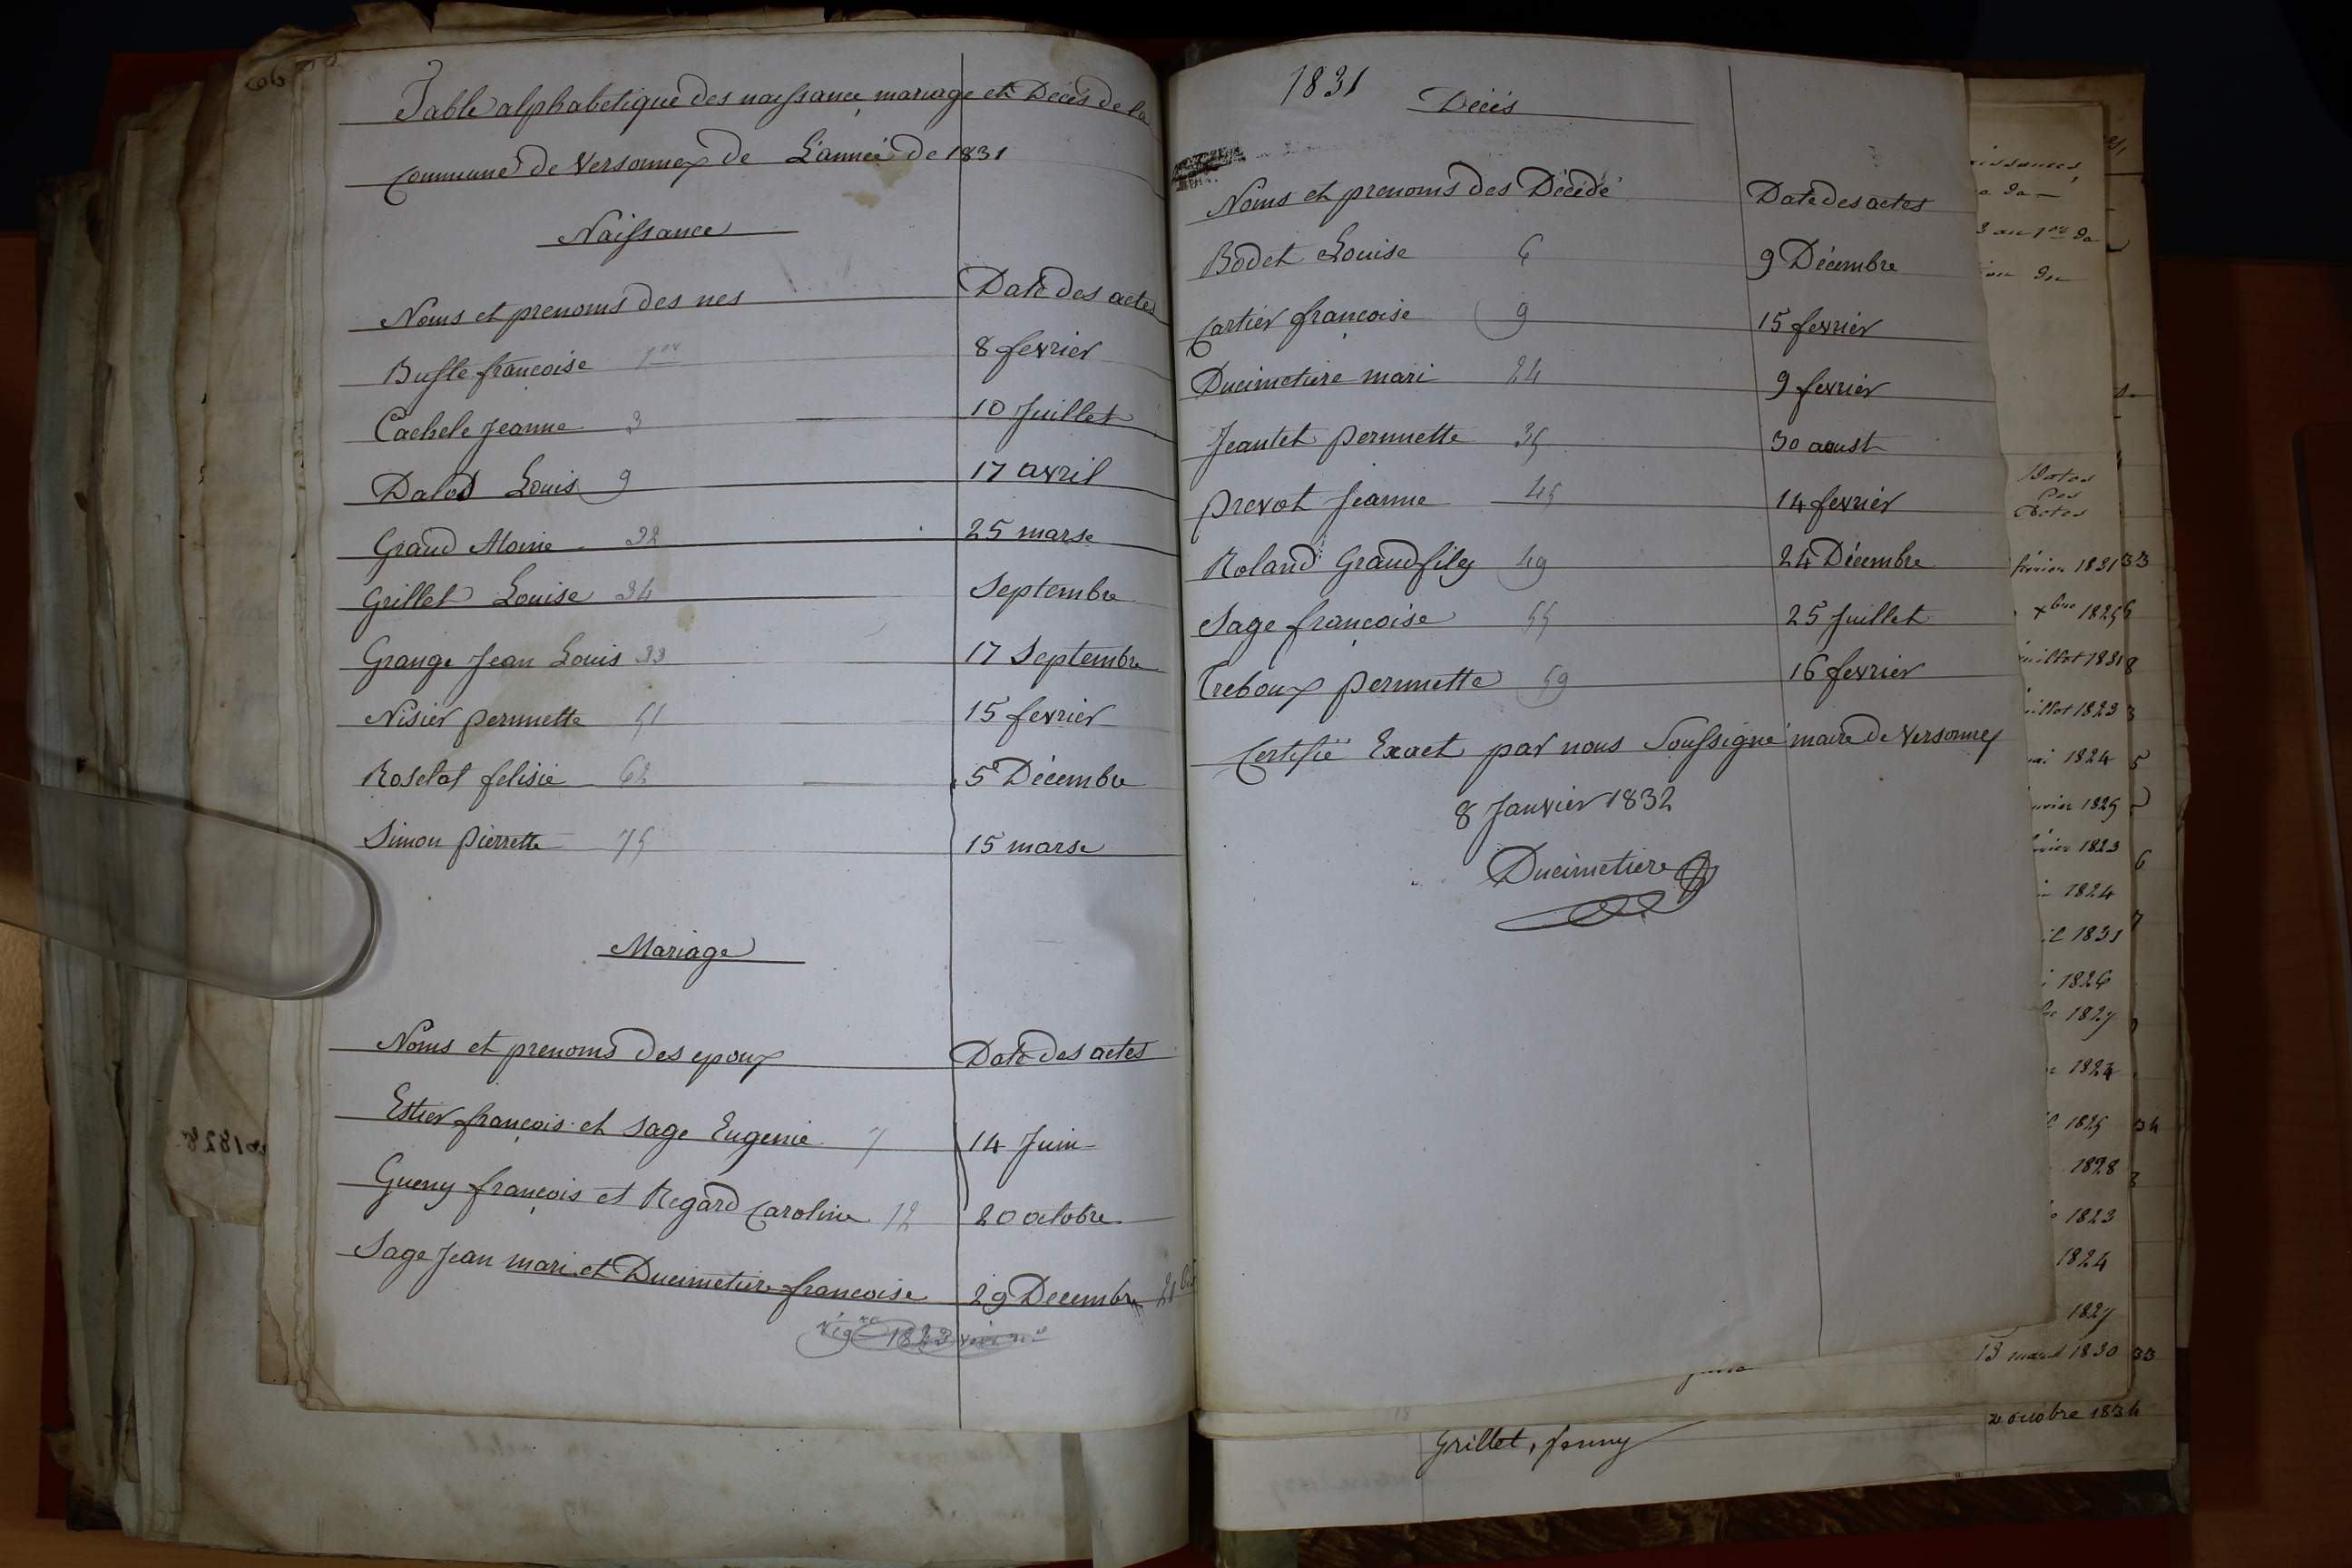 Table alphabetique des naissance, mariage et Décés de la
Commune de Versonnex de L'année de 1831
Naissance
Noms et prenoms des nes Date des actes
Busle francoise 1er 8 fevrier
Cachele Jeanne 3 10 Juillet
Dalod Louis 9 17 avril
Grand Moïnie 32 25 marse
Grillet Louise 34 Septembre
Grange Jean Louis 33 17 Septembre
Nisier pernnette 51 15 fevrier
Roselat felisie 62 5 Décembre
Simon Pierrette 75 15 marse
Mariage
Noms et prenoms des epoux Date des actes
Estier françois et Sage Eugenie 7 14 Juin
Gueny françois et Regard Caroline 12 20 octobre
Sage Jean mari et Ducimetiere francoise 29 Decembre 21 bis
1823
1831
Décés
Noms et prenoms des Décédé Date des actes
Bodet Louise 6 9 Décembre
Cartier françoise 9 15 fevrier
Ducimetiere mari 24 9 fevrier
Jeantet pernnette 35 30 aoust
prevot Jeanne 45 14 fevrier
Roland Grandfils 49 24 Décembre
Sage françoise 55 25 Juillet
Treboux pernnette 59 16 fevrier
Certifié Exact par nous Soussigné maire de Versonnex
8 Janvier 1832
Ducimetiere
Dates
Des
Actes
1831 33
xbre 1825
1831 8
1823 3
1824 5
1825
1823 6
1824
1831 7
1826
1827
1824
1825 34
1828 3
1823
1824
1827
13 1830 33
Grillet, Jenny 2 octobre 1834
1828